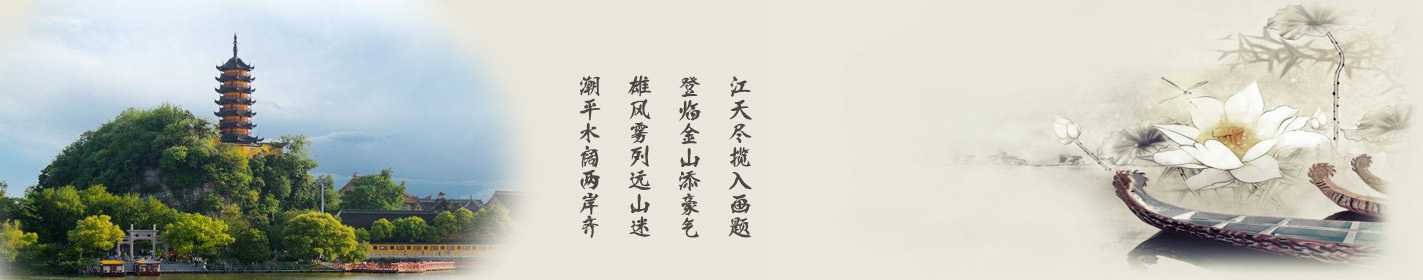 江天尽揽入画题
登临金山添豪气
雄风雾列远山迷
潮平水阔两岸齐